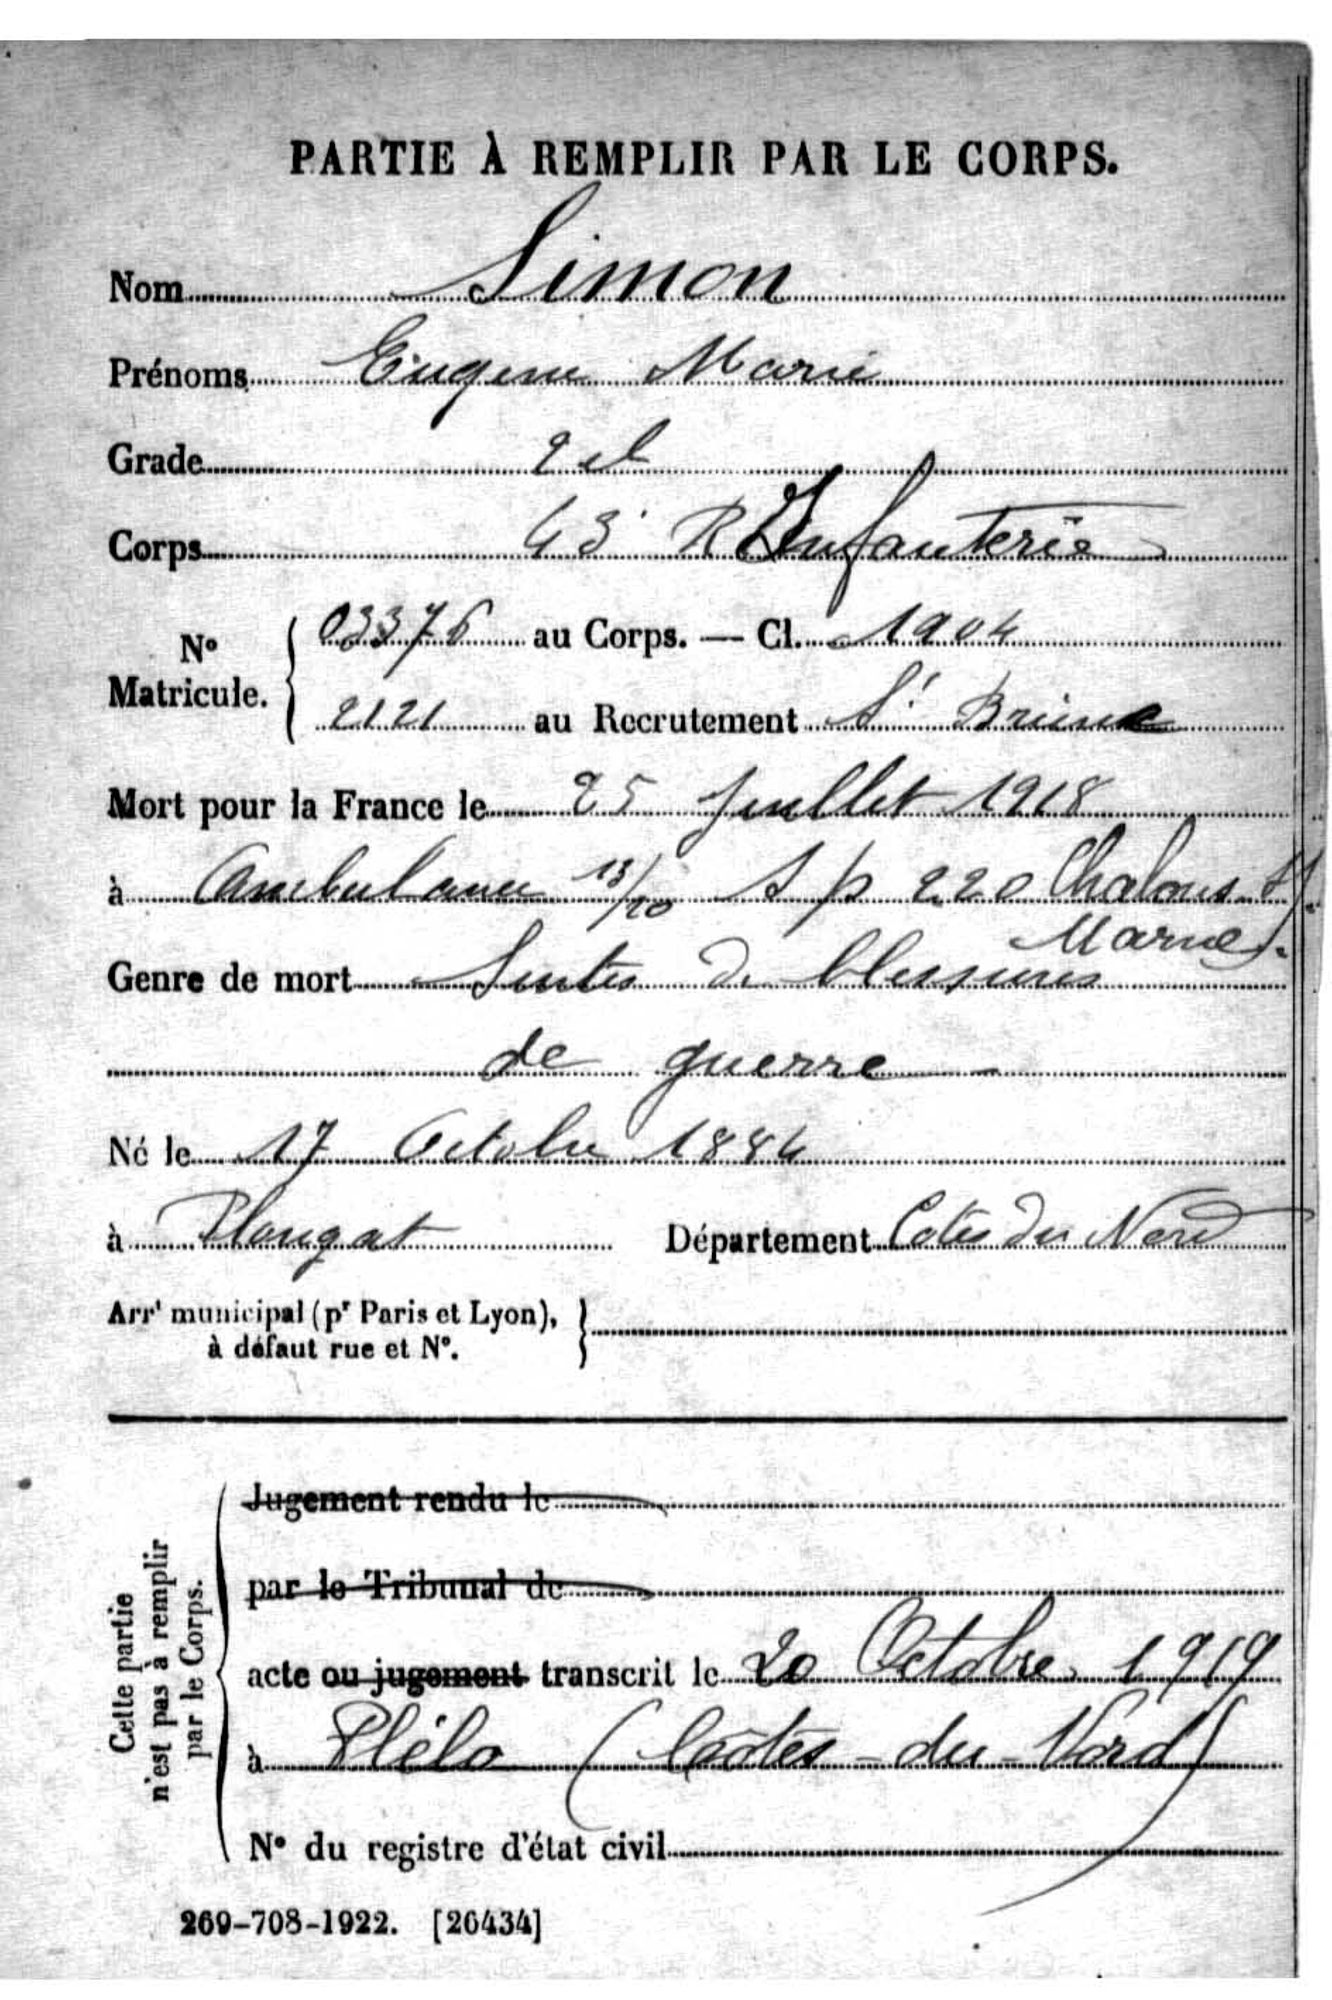 PARTIE À REMPLIR PAR LE CORPS.
Nom Simon
Prénoms Eugène Marie
Grade 2 cl
Corps 43e R Infanterie
No Matricule. 03376 au Corps. — Cl. 1904
2121 au Recrutement St Brieuc
Mort pour la France le 25 Juillet 1918
à Ambulance 13/20 S p 220 Chalons s/
Marne.
Genre de mort Suites de blessures
de guerre —
Né le 17 Octobre 1884
à Plougat Département Cotes du Nord
Arrt municipal (pr Paris et Lyon),
à défaut rue et No.
Cette partie
n'est pas à remplir
par le Corps.
Jugement rendu le
par le Tribunal de
acte ou jugement transcrit le 20 Octobre 1919
à Plélo (Côtes-du-Nord)
No du registre d'état civil
269-708-1922. [26434]